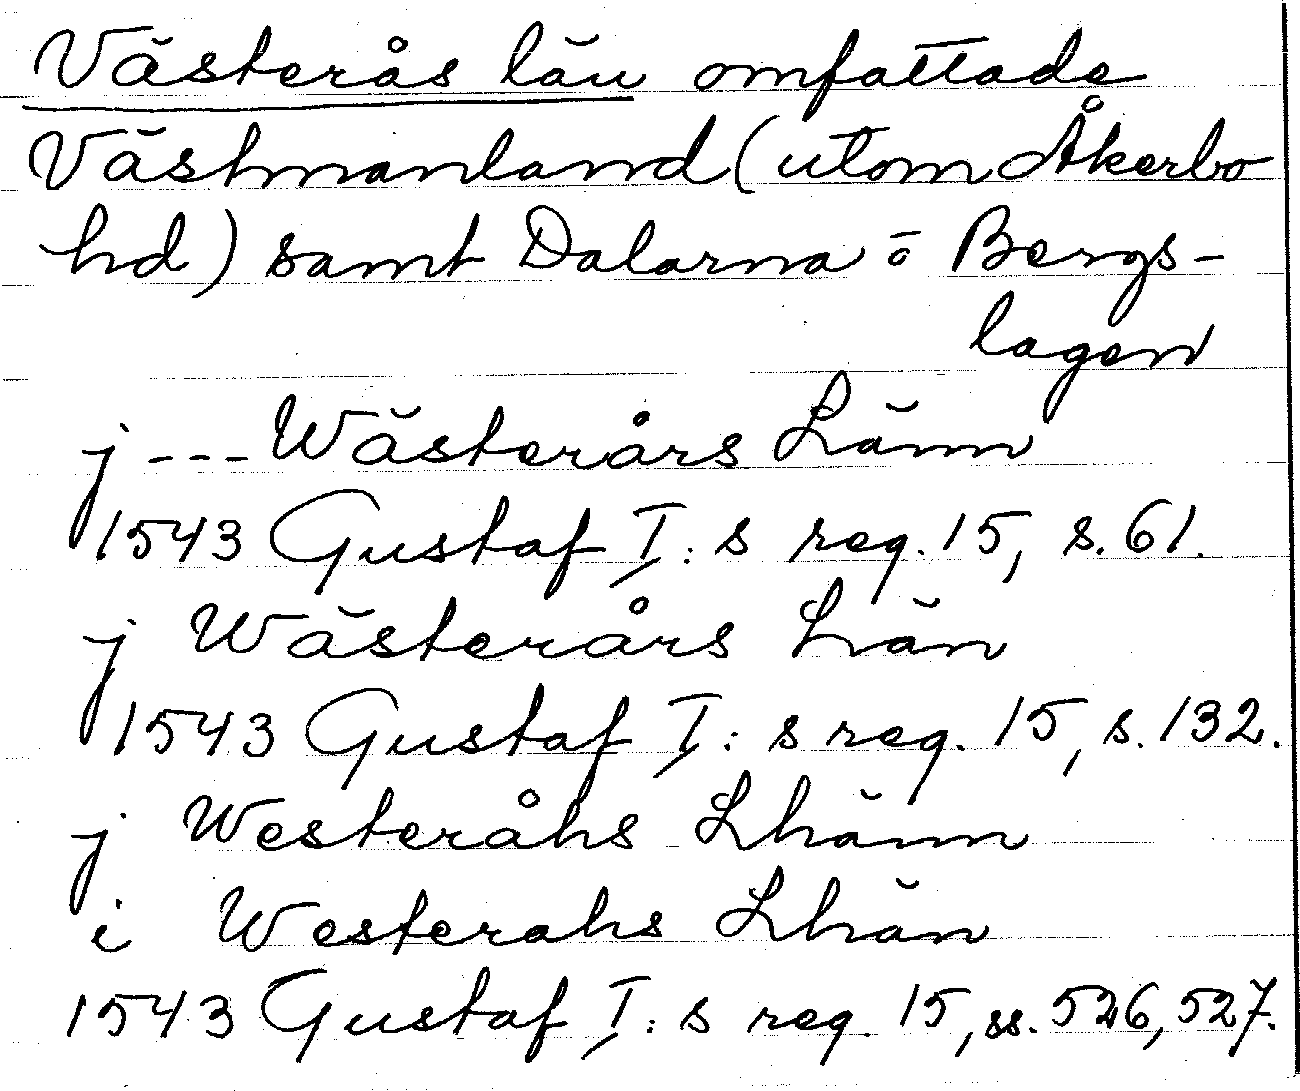 Västerås län omfattade
Västmanland (utom Åkerbo
hd) samt Dalarna o Bergs-
lagen
j --- Wästerårs Länn
1543 Gustaf I: s reg. 15, s. 61.
j Wästerårs Län
1543 Gustaf I: s reg. 15, s. 132.
j Westeråhs Lhänn
i Westerahs Lhän
1543 Gustaf I: s reg. 15, ss. 526, 527.